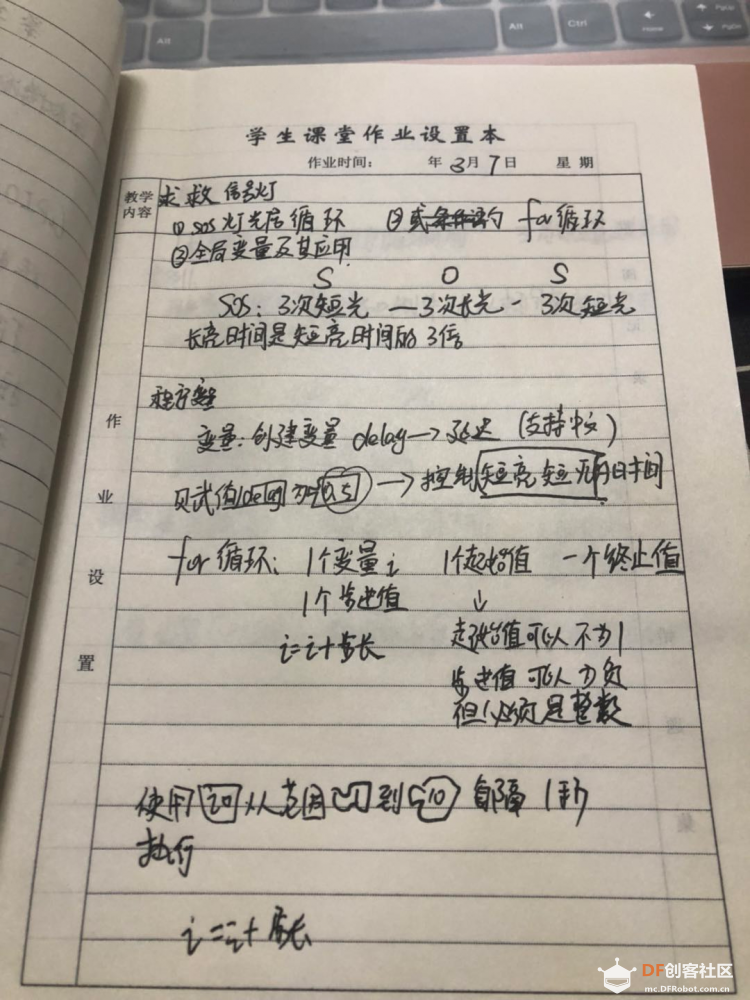 Alt
Alt
Ctrl
PgUp
PgDn
学生课堂作业设置本
作业时间： 年 3月 7日 星 期
教学内容
求救信号灯
① SOS灯光后循环 ② for循环
③全局变量及其应用
S O S
SOS：3次短光 — 3次长光 - 3次短光
长亮时间是短亮时间的3倍
程序
变量：创建变量 delay→延迟 (支持中文)
赋值 delay 为 0.5 → 控制 短亮 短灭 的时间
for循环： 1个变量i 1个起始值 一个终止值
1个步进值 ↓
i=i+步长 起始值可以不为1
步进值可以为负
但必须是整数
使用 i 从范围 1 到 10 每隔 1
执行
i=i+步长
作业设置
DF创客社区
mc.DFRobot.com.cn